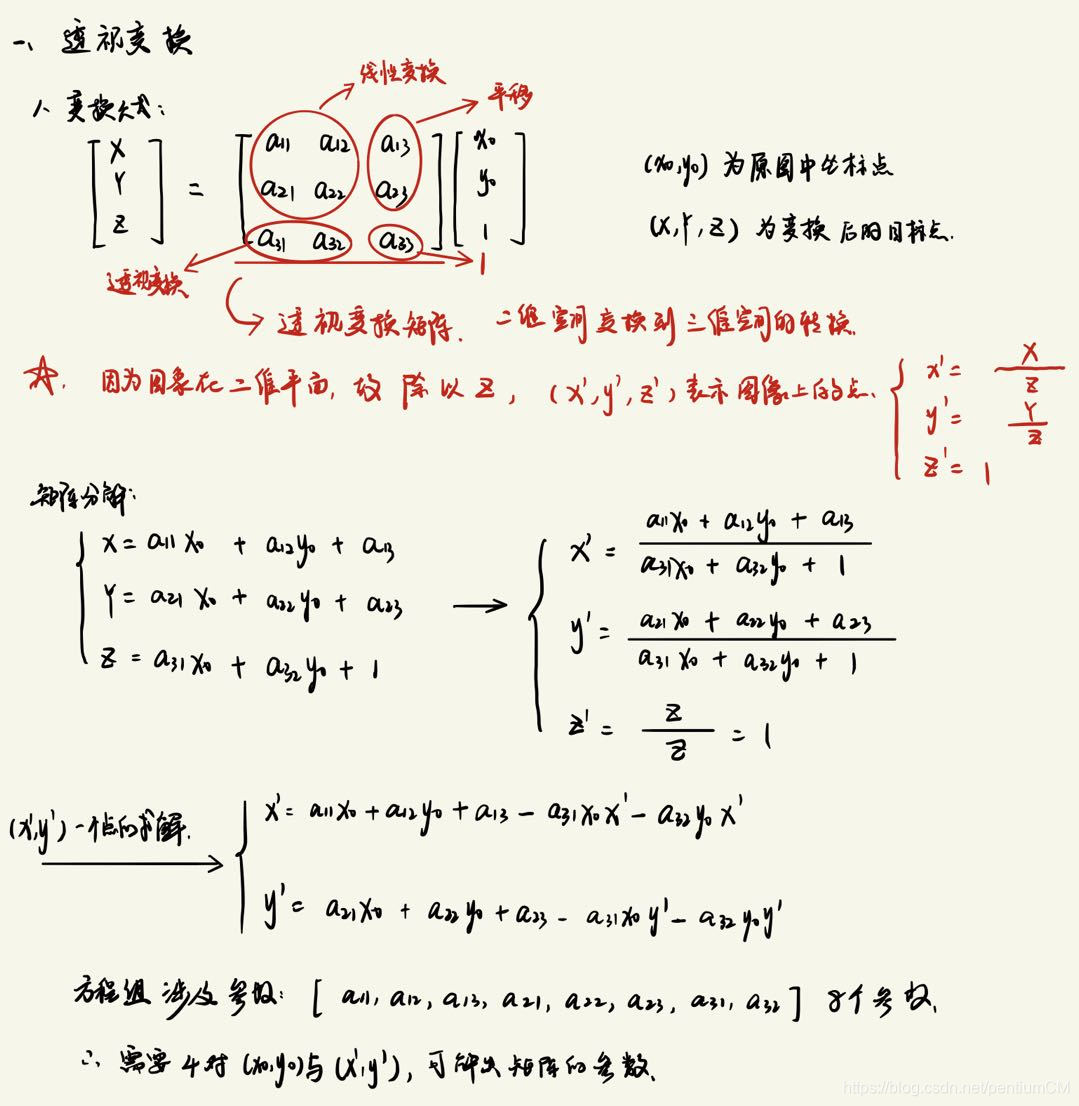 一、透视变换
1、变换公式:
线性变换
平移
[X Y Z] = [a11 a12 a13; a21 a22 a23; a31 a32 a33] [x0 y0 1]
(x0,y0) 为原图中坐标点
(X,Y,Z) 为变换后的目标点.
透视变换
1
→ 透视变换矩阵. 二维空间变换到三维空间的转换.
☆. 因为图象在二维平面, 故除以Z, (x',y',z')表示图像上的点. { x' = X/Z
y' = Y/Z
z' = 1
矩阵分解:
X = a11x0 + a12y0 + a13
Y = a21x0 + a22y0 + a23
Z = a31x0 + a32y0 + 1
→
x' = (a11x0 + a12y0 + a13)/(a31x0 + a32y0 + 1)
y' = (a21x0 + a22y0 + a23)/(a31x0 + a32y0 + 1)
z' = Z/Z = 1
(x',y')一个点的求解.
x' = a11x0 + a12y0 + a13 - a31x0x' - a32y0x'
y' = a21x0 + a22y0 + a23 - a31x0y' - a32y0y'
方程组涉及参数: [a11, a12, a13, a21, a22, a23, a31, a32] 8个参数.
∴ 需要4对(x0,y0)与(x',y'), 可解出矩阵的参数.
https://blog.csdn.net/pentiumCM